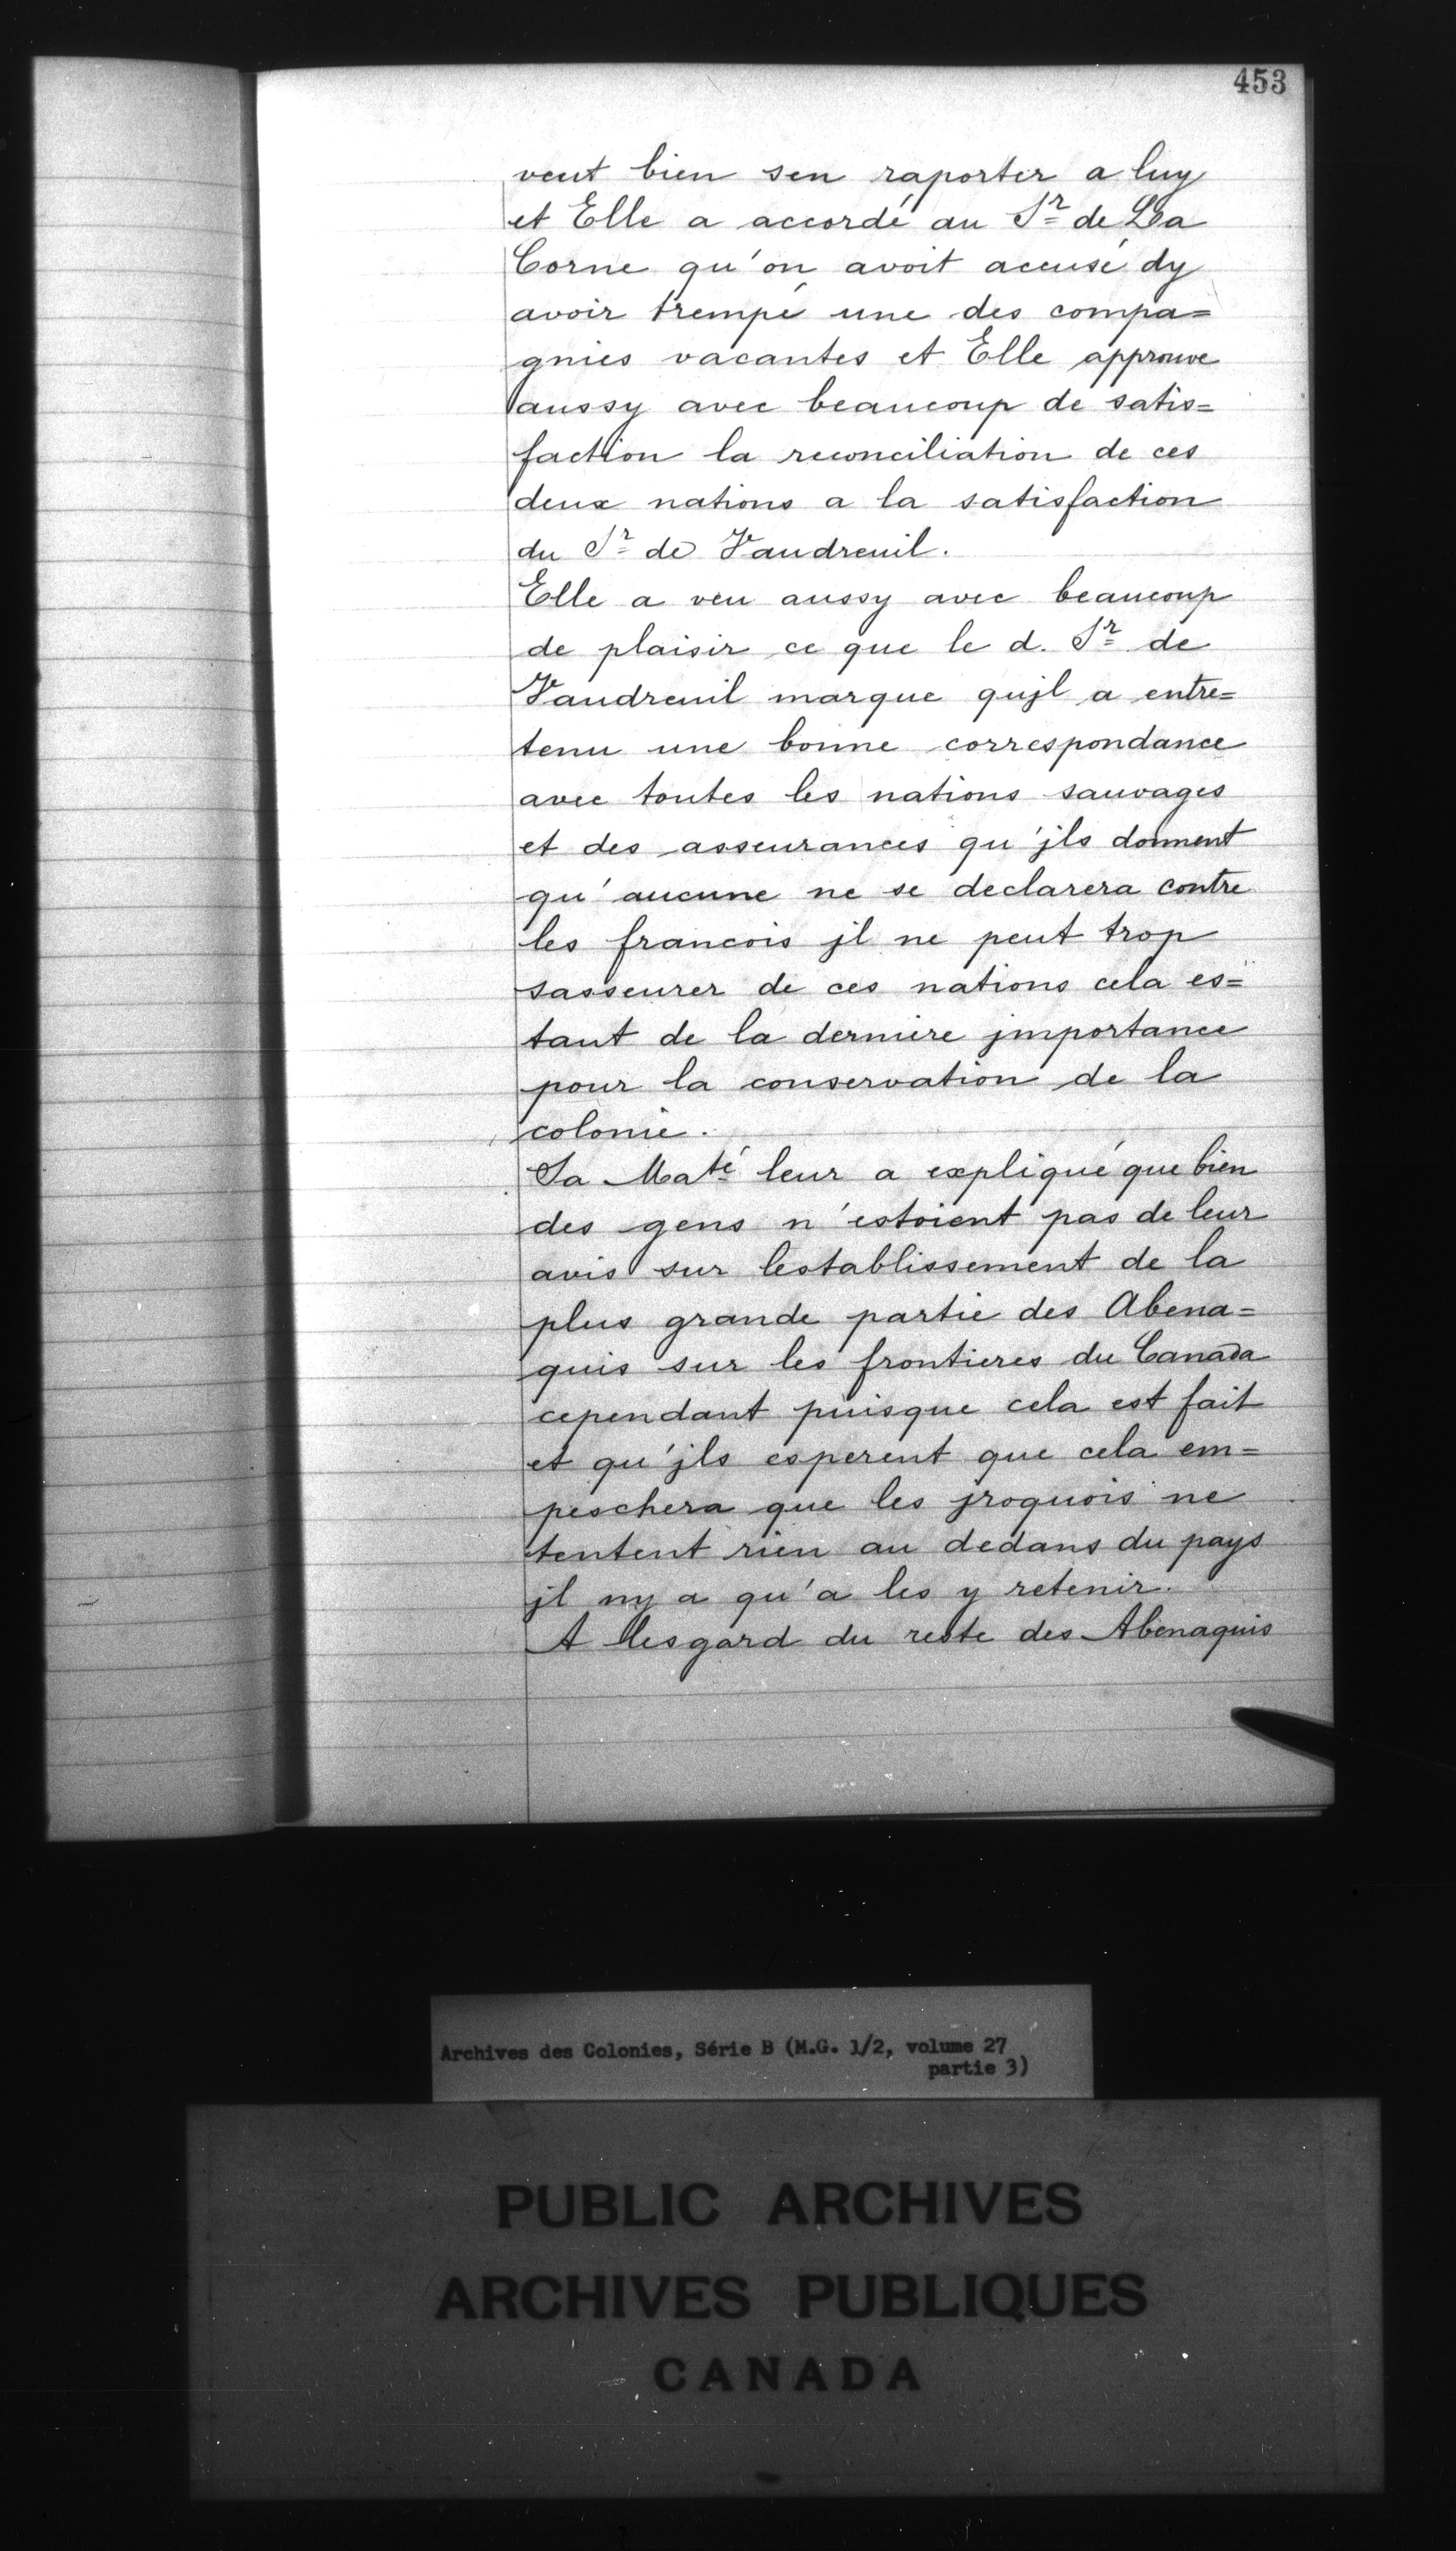 453
veut bien sen raporter a luy
et Elle a accordé au Sr de La
Corne qu'on avoit accusé dy
avoir trempé une des compa=
gnies vacantes et Elle approuve
aussy avec beaucoup de satis=
faction la reconciliation de ces
deux nations a la satisfaction
du Sr de Vaudreuil.
Elle a veu aussy avec beaucoup
de plaisir ce que le d. Sr de
Vaudreuil marque qujl a entre=
tenu une bonne correspondance
avec toutes les nations sauvages
et des asseurances qu'jls donnent
qu'aucune ne se declarera contre
les francois jl ne peut trop
sasseurer de ces nations cela es=
tant de la derniere jmportance
pour la conservation de la
colonie.
Sa Maté leur a expliqué que bien
des gens n'estoient pas de leur
avis sur lestablissement de la
plus grande partie des Abena=
quis sur les frontieres du Canada
cependant puisque cela est fait
et qu'jls esperent que cela em=
peschera que les jroquois ne
tentent rien au dedans du pays
jl ny a qu'a les y retenir.
A lesgard du reste des Abenaquis
Archives des Colonies, Série B (M.G. 1/2, volume 27
partie 3)
PUBLIC ARCHIVES
ARCHIVES PUBLIQUES
CANADA